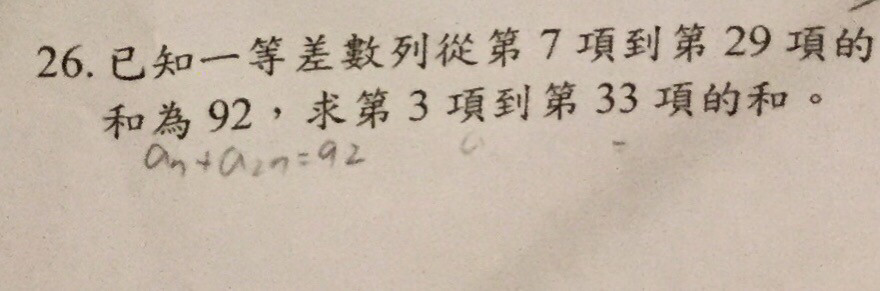 26. 已知一等差數列從第 7 項到第 29 項的
和為 92，求第 3 項到第 33 項的和。
a₇+a₂₉=92